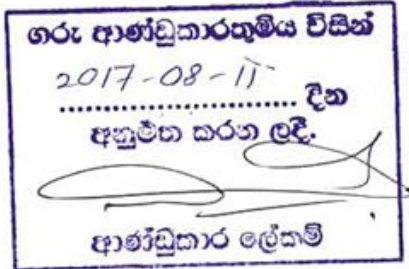 ගරු ආණ්ඩුකාරතුමිය විසින්
2017-08-11
.............................. දින
අනුමත කරන ලදී.
ආණ්ඩුකාර ලේකම්